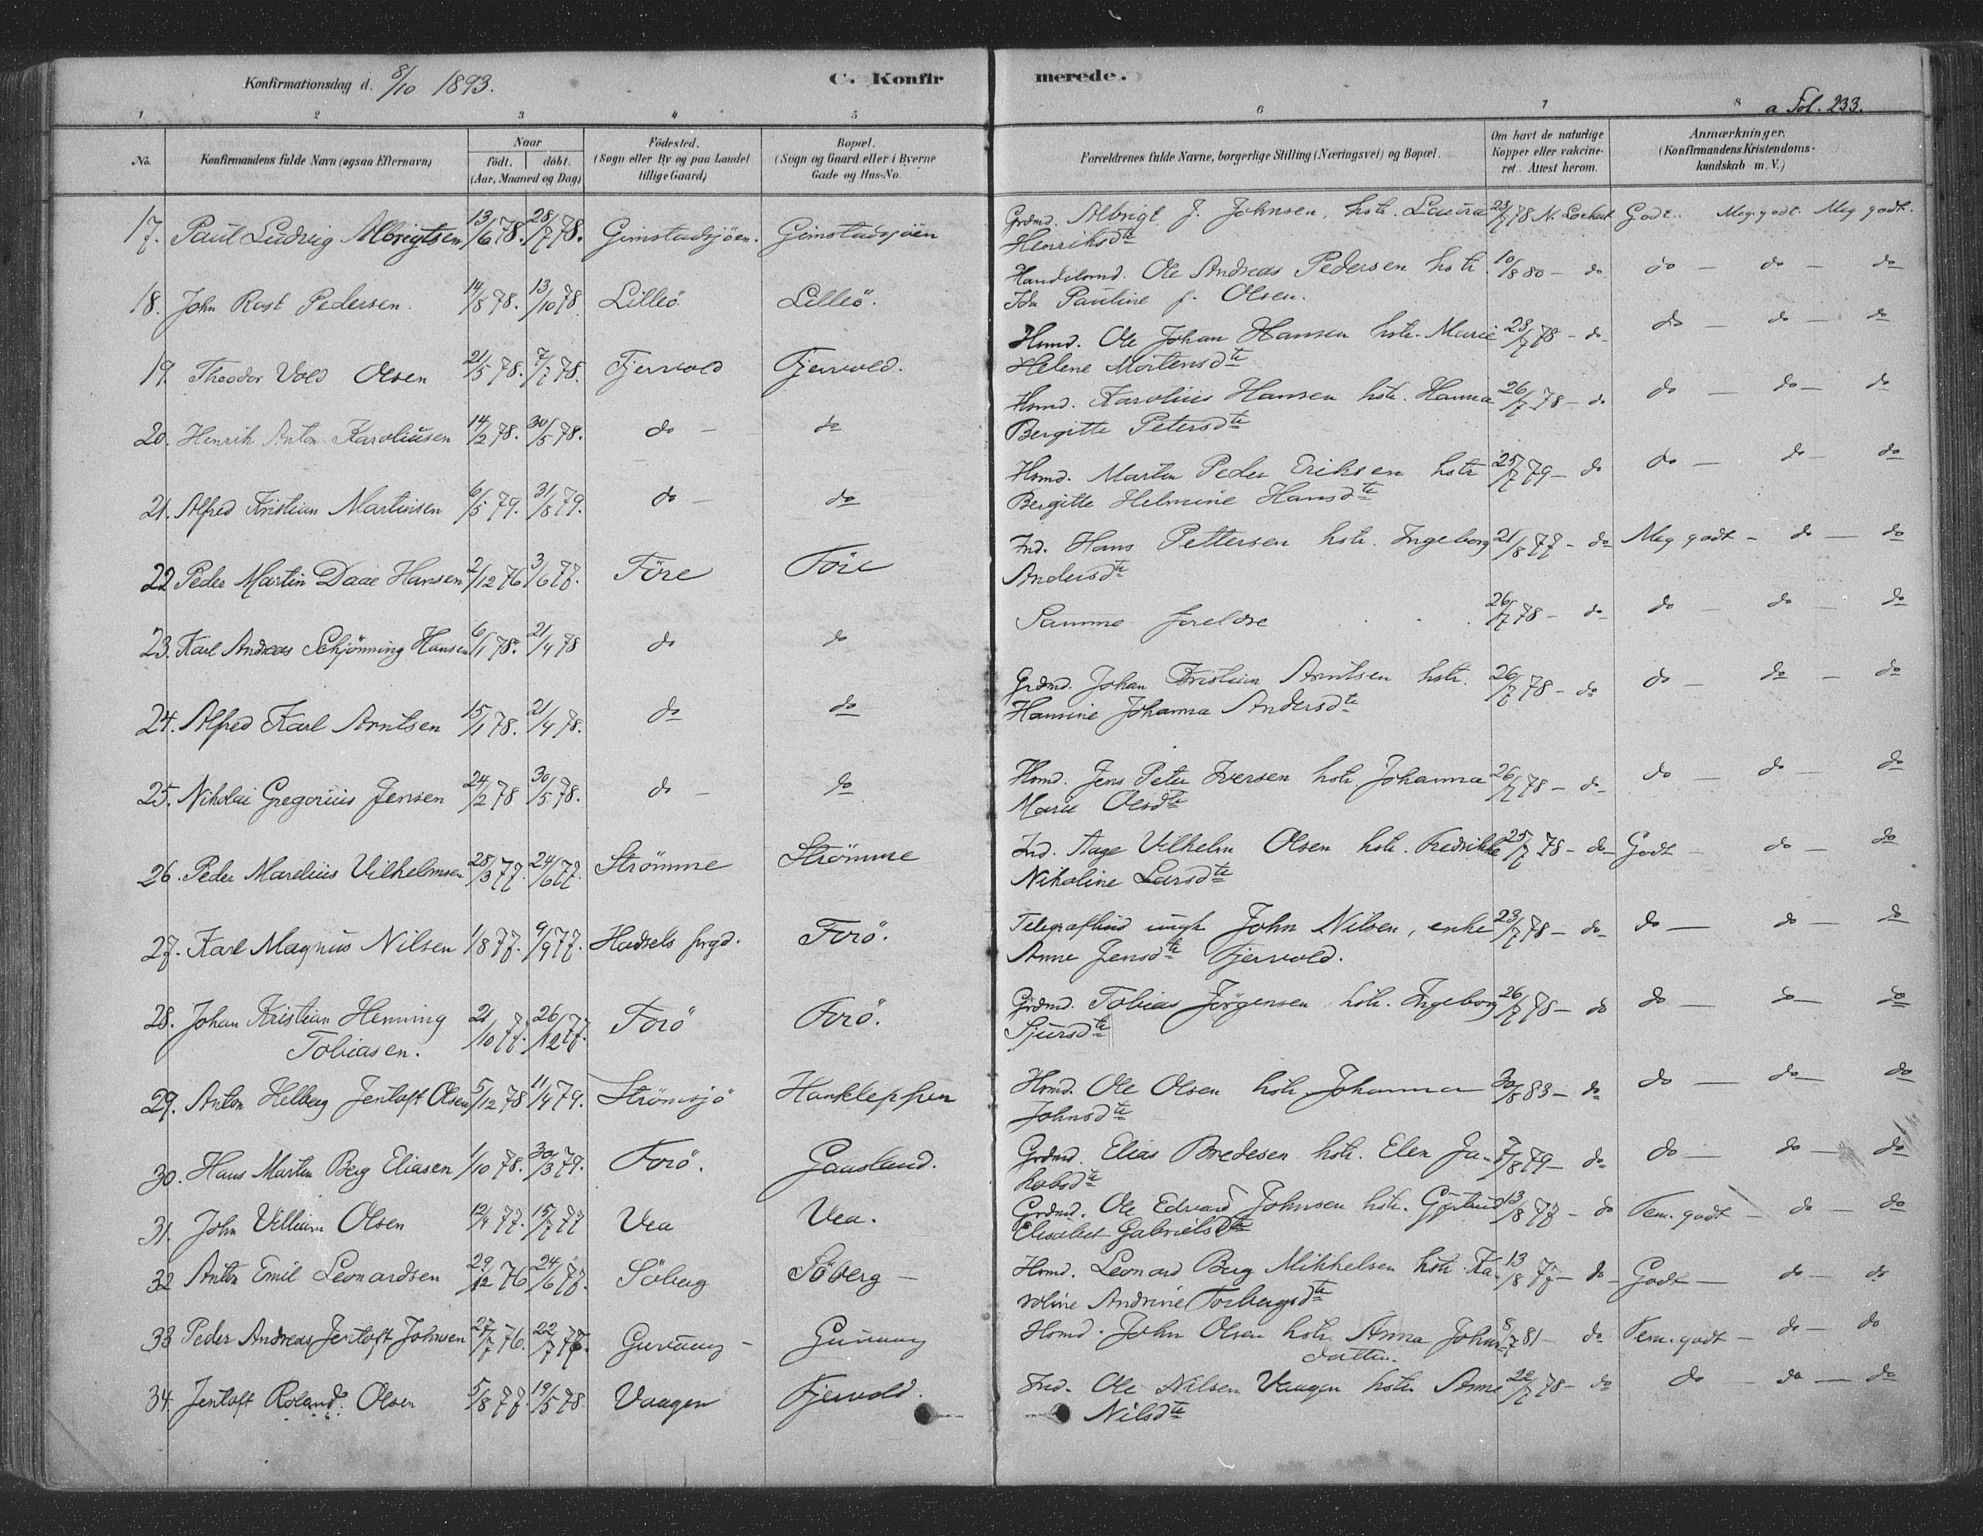 Konfirmationsdag d. 8/10 1893. C. Konfirmerede. a Fol. 233.
1 2 3 4 5 6 7 8
No. Konfirmandens fulde Navn (ogsaa Efternavn) Naar født. døbt. (Aar, Maaned og Dag) Fødested. (Sogn eller By og paa Landet tillige Gaard) Bopæl. (Sogn og Gaard eller i Byerne Gade og Hus-No. Forældrenes fulde Navne, borgerlige Stilling (Næringsvei) og Bopæl. Om havt de naturlige Kopper eller vakcineret. Attest herom. Anmærkninger. (Konfirmandens Kristendomskundskab m. V.)
17. Paul Ludvig Albrigtsen 13/6 78. 28/7 78. Gimstadsjøen. Gimstadsjøen Grdmd. Albrigt J. Johnsen, hstr. Laura 23/7 78 N. Lockert Godt. Meg. godt. Meg godt.
Henriksdtr
18. John Rost Pedersen. 14/8 78. 13/10 78. Lilleö Lilleö. Handelsmd. Ole Andreas Pedersen hstr. 10/8 80 – do do – do – do
Ida Pauline f. Olsen.
19. Theodor Vold Olsen 21/5 78. 7/7 78. Fjervold Fjervold. Hsmd. Ole Johan Hansen hstr. Marie 23/7 78 – do do – do – do
Helene Mortensdtr
20. Henrik Anton Karoliusen 14/2 78. 30/5 78. do – do Hsmd. Karolius Hansen hstr. Hanna 26/7 78 – do do – do – do
Bergitte Petersdtr
21. Alfred Kristian Martinsen 6/5 79. 31/8 79. do – do Hsmd. Martin Peder Eriksen hstr 25/7 79 – do do – do – do
Bergitte Helmine Hansdtr
22 Peder Martin Daae Hansen 2/12 76 3/6 77. Före Före Ind. Hans Pettersen hstr. Ingeborg 21/8 77 – do Meg godt – do – do
Andersdtr
23. Karl Andreas Schjønning Hansen 6/1 78. 21/4 78 do do Samme foreldre 26/7 78 – do do – do – do
24. Alfred Karl Arntsen 15/1 78. 21/4 78. do do Grdmd. Johan Kristian Arntsen hstr. 26/7 78 – do do – do – do
Hansine Johanna Andersdtr
25. Nikolai Gregorius Jensen 24/2 78 30/5 78. do – do Hsmd. Jens Peter Iversen hstr. Johanna 26/7 78 – do do – do – do
Marie Olsdtr
26. Peder Marelius Vilhelmsen 28/3 77. 24/6 77. Strömme Strömme Ind. Aage Vilhelm Olsen hstr. Fredrikke 25/7 78 – do Godt – do – do
Nikoline Larsdtr
27. Karl Magnus Nilsen 1/8 77. 9/9 77. Hadsels prgd. Forö. Telegrafbud ungk John Nilsen, enke 23/7 78 – do do – do – do
Anne Jensdtr Fjervold.
28. Johan Kristian Henning 21/10 77. 26/12 77. Forö Forö. Grdmd. Tobias Jörgensen hstr. Ingeborg 26/7 78 – do do – do – do
Tobiasen. Sjursdtr
29. Anton Helberg Jentoft Olsen 5/12 78 11/4 79. Strömsjö Haukleppen Hsmd. Ole Olsen hstr. Johanna 30/8 83 – do do – do – do
Johnsdtr
30. Hans Martin Berg Eliasen 1/10 78. 30/3 79. Forö. Gausland. Grdmd. Elias Bredesen hstr. Elen Ja- 7/8 79 – do do – do – do
kobsdtr
31. John Villiam Olsen 12/4 77. 15/7 77 Vea Vea. Grdmd. Ole Edvard Johnsen hstr. Gjertrud 13/8 77 – do Tem. godt – do – do
Elisabet Gabrielsdtr
32 Anton Emil Leonardsen 29/12 76 24/6 77. Söberg Söberg – Hsmd. Leonard Berg Mikkelsen hstr. Ka- 13/8 77 – do – Godt – do – do
roline Andrine Torbergsdtr
33 Peder Andreas Jentoft Johnsen 27/7 76. 22/7 77. Guvaag – Guvaag Hsmd. John Olsen hstr. Anna Johns- 8/7 81 – do Tem. godt – do – do
datter.
34. Jentoft Roland Olsen 5/8 77. 19/5 78. Vaagen Fjervold. Ind. Ole Nilsen Vaagen hstr. Anne 22/7 78 – do do – do – do
Nilsdtr